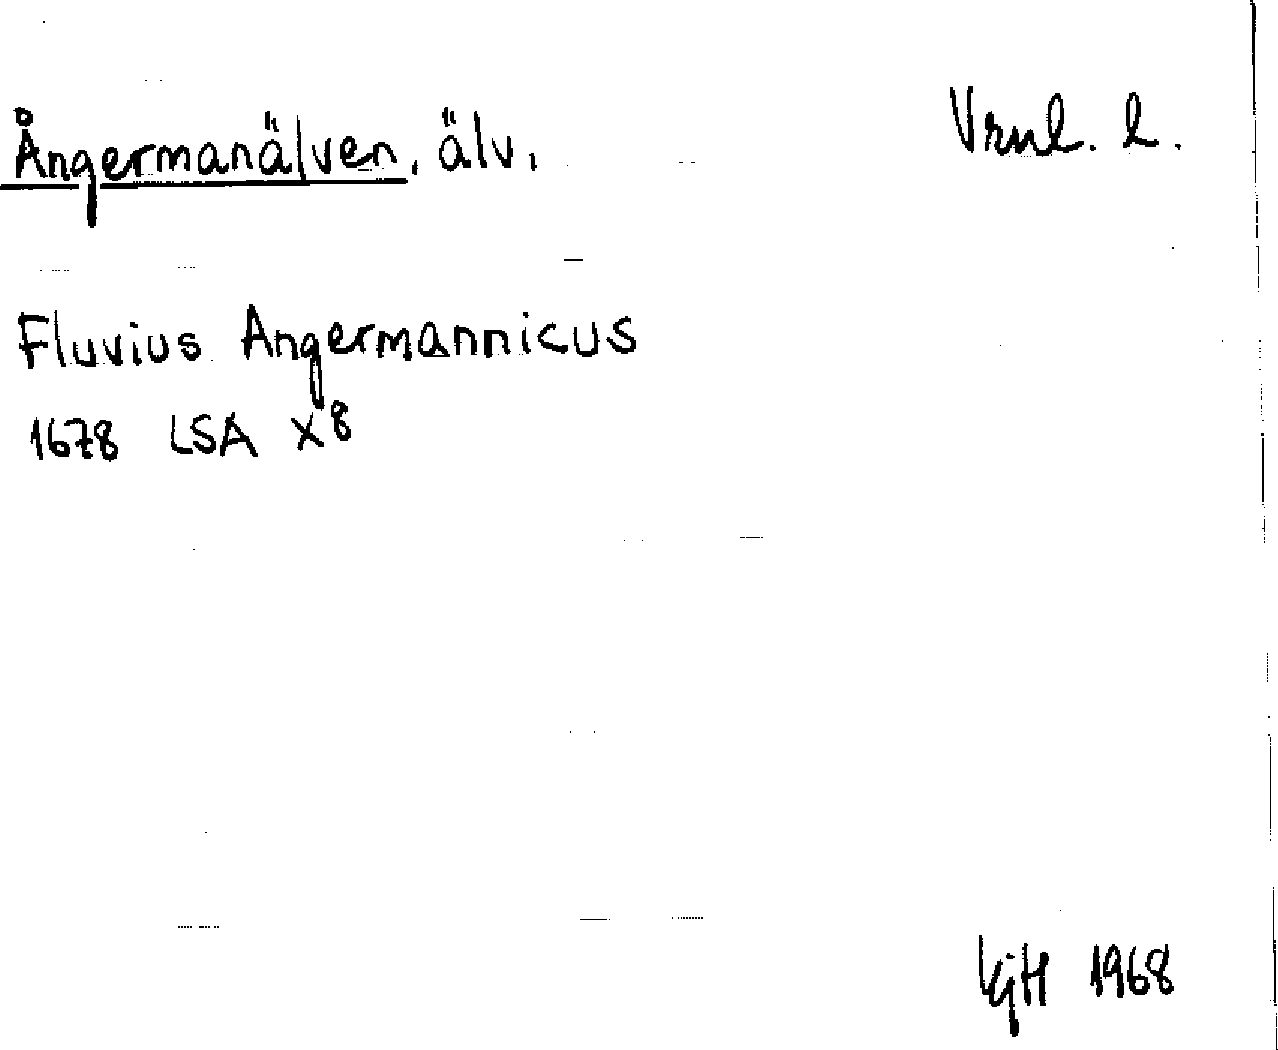 Ångermanälven, älv.
Vrml. l.
Fluvius Angermannicus
1678 LSA X⁸
KjH 1968